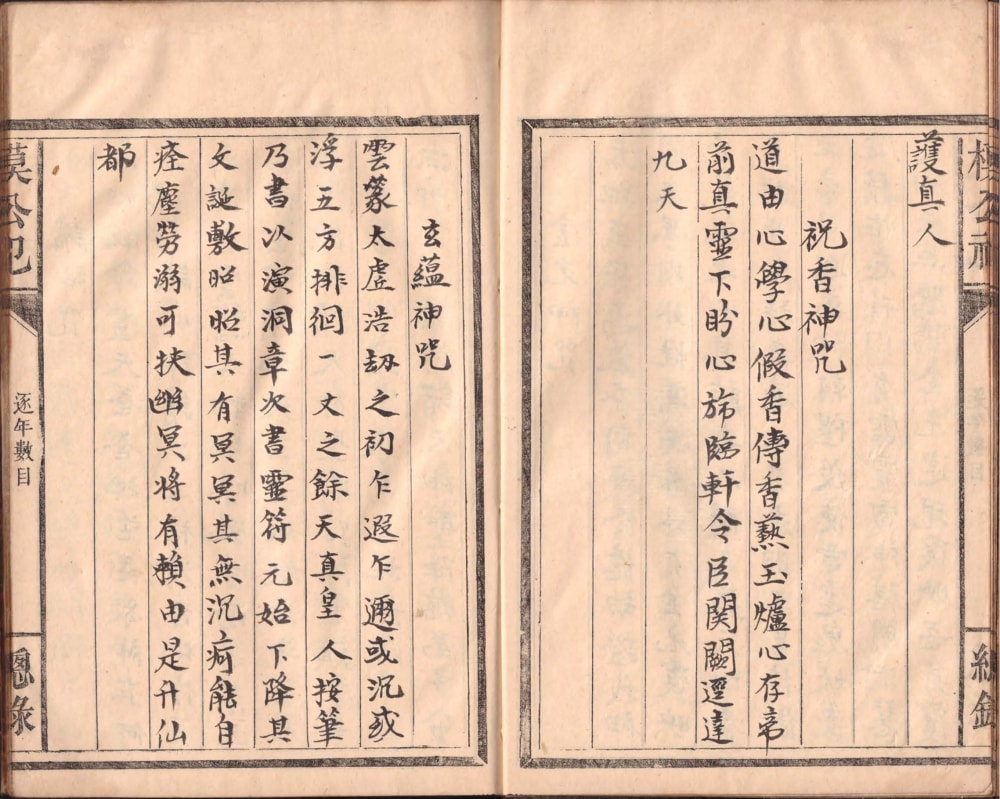 護真人
祝香神咒
道由心學心假香傳香爇玉爐心存帝
前真靈下盼心旆臨軒令臣関闕逕達
九天
玄蘊神咒
雲篆太虛浩刼之初乍遐乍邇或沉或
浮五方排徊一丈之餘天真皇人按筆
乃書以演洞章次書靈符元始下降其
文誕敷昭昭其有冥冥其無沉痾能自
痊塵勞溺可扶幽冥將有賴由是升仙
都
逐年數目
總錄